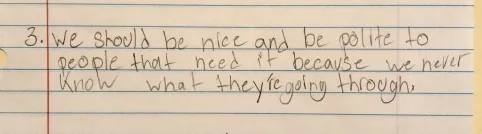 3. We should be nice and be polite to
people that need it because we never
know what they're going through.